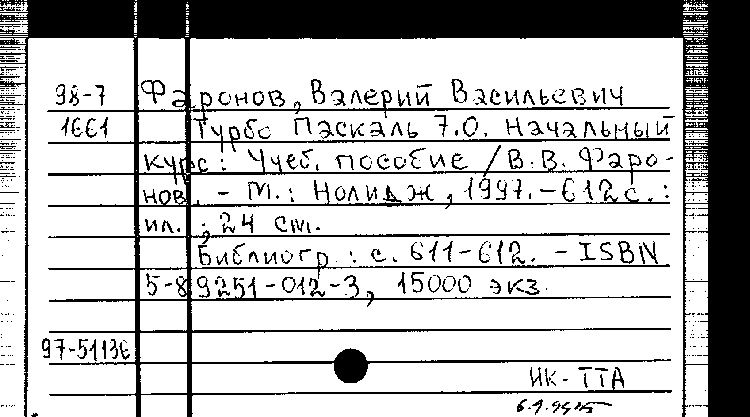 98-7 Фаронов, Валерий Васильевич
1661 Турбо Паскаль 7.0. Начальный
курс: Учеб. пособие / В.В. Фаро-
нов. - М.: Нолидж, 1997.-612с.:
ил. ; 24 см.
Библиогр.: с. 611-612. - ISBN
5-89251-012-3, 15000 экз.
97-51136
ИК-ТТА